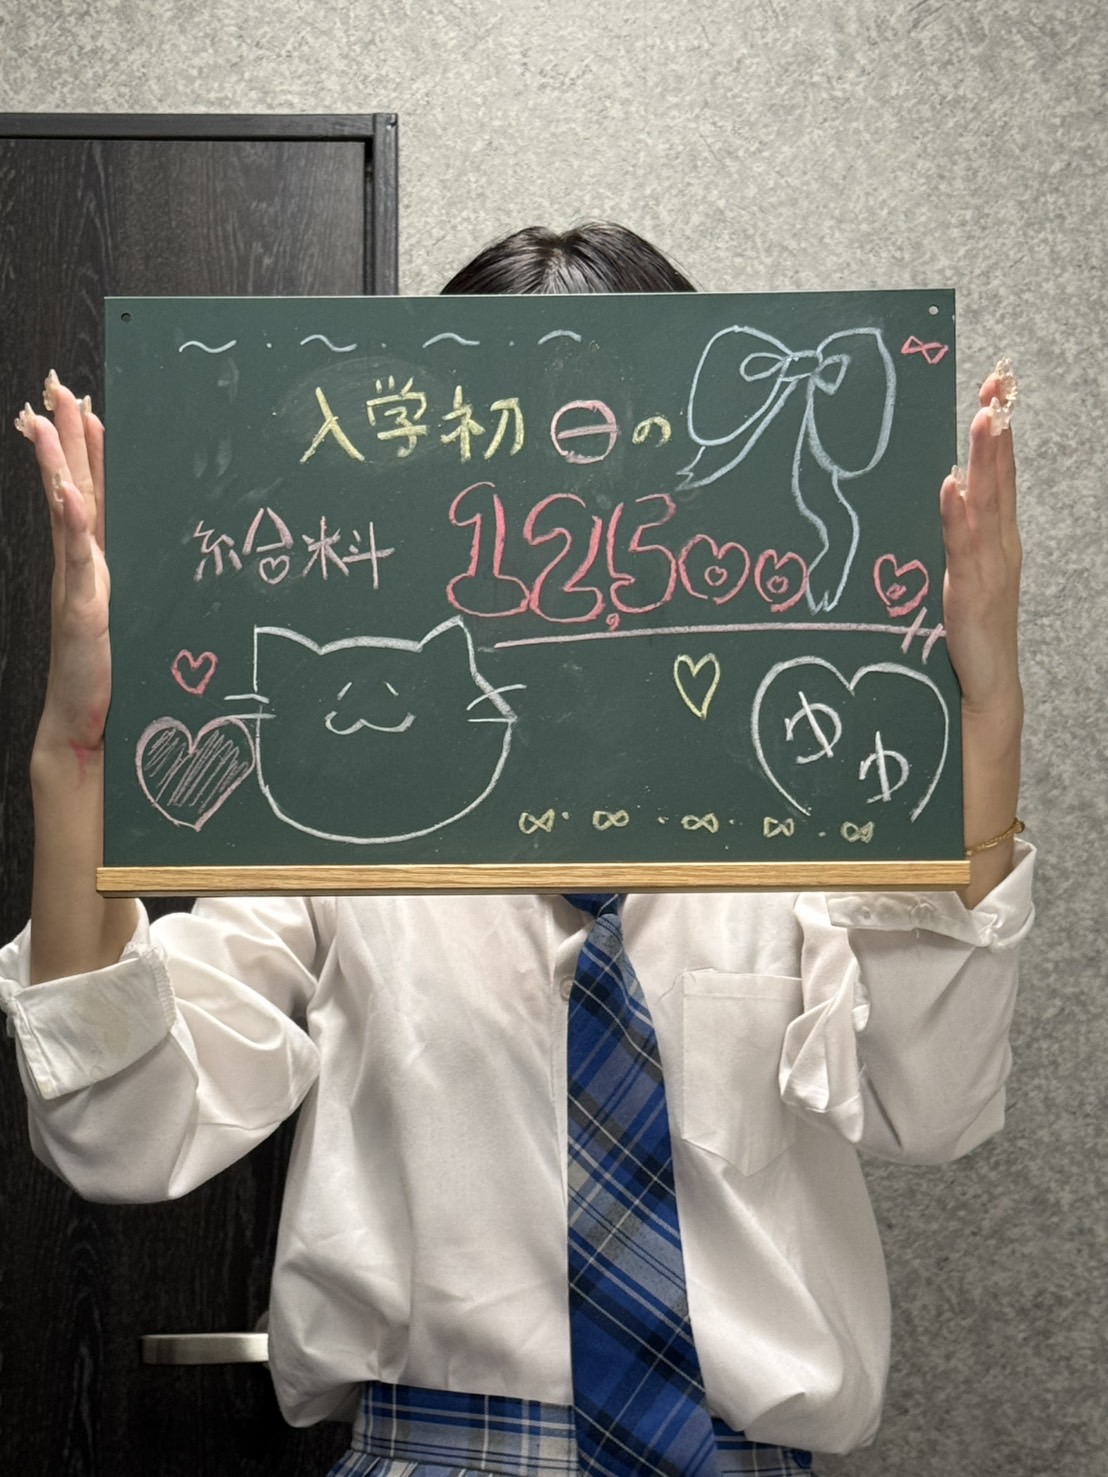 入学初日の
給料 12,500
ゆゆ